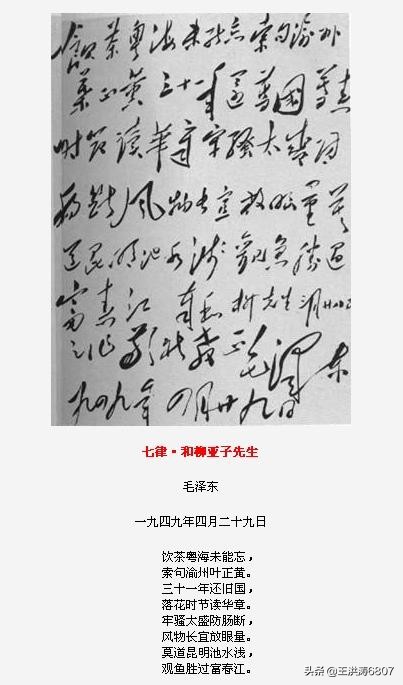 飲茶粵海未能忘索句渝州
葉正黄三十一年還舊國落花
時節讀華章牢騷太盛防
腸斷風物长宜放眼量莫
道昆明池水浅觀魚勝過
富春江 奉和柳先生三月廿八日
之作敬祈教正 毛澤东
一九四九年四月廿九日
七律·和柳亚子先生
毛泽东
一九四九年四月二十九日
饮茶粤海未能忘，
索句渝州叶正黄。
三十一年还旧国，
落花时节读华章。
牢骚太盛防肠断，
风物长宜放眼量。
莫道昆明池水浅，
观鱼胜过富春江。
头条 @王洪涛6807